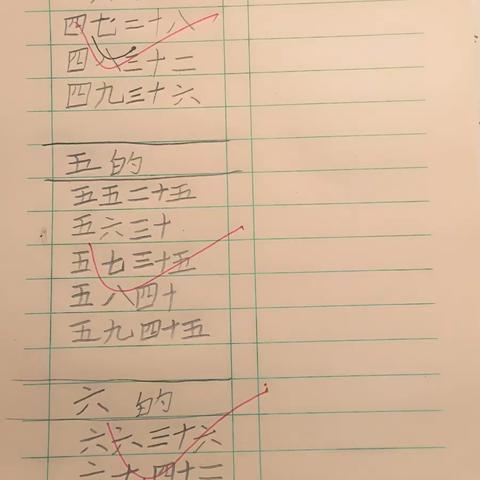 四七二十八
四八三十二
四九三十六
五的
五五二十五
五六三十
五七三十五
五八四十
五九四十五
六的
六六三十六
六七四十二